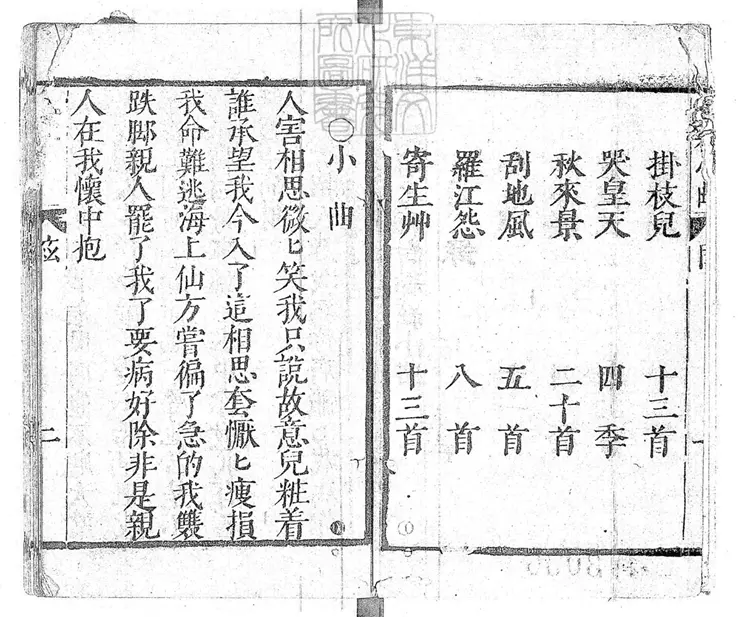 掛枝兒 十三首
哭皇天 四季
秋來景 二十首
刮地風 五首
羅江怨 八首
寄生艸 十三首
○小曲
人害相思微匕笑我只說故意兒粧着
誰承望我今入了這相思套懨匕瘦損
我命難逃海上仙方嘗徧了急的我雙
跌脚親人罷了我了要病好除非是親
人在我懷中抱
二